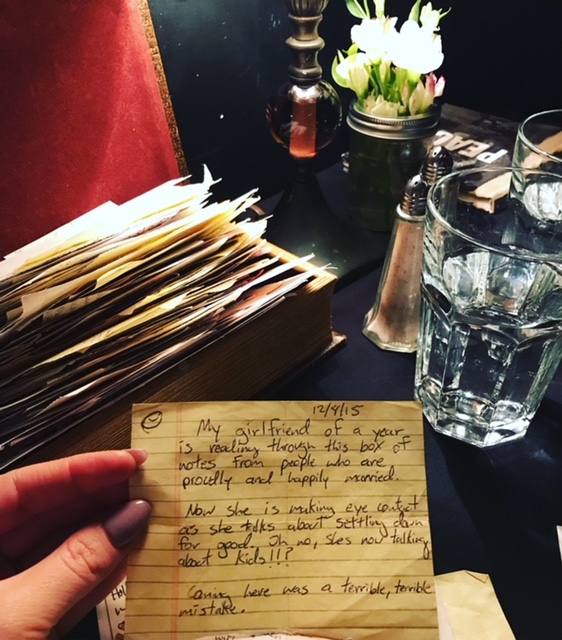 PEAC
12/8/15
My girlfriend of a year
is reading through this box of
notes from people who are
proudly and happily married.
Now she is making eye contact
as she talks about settling down
for good. Oh no, shes now talking
about kids!!!?
Coming here was a terrible, terrible
mistake.